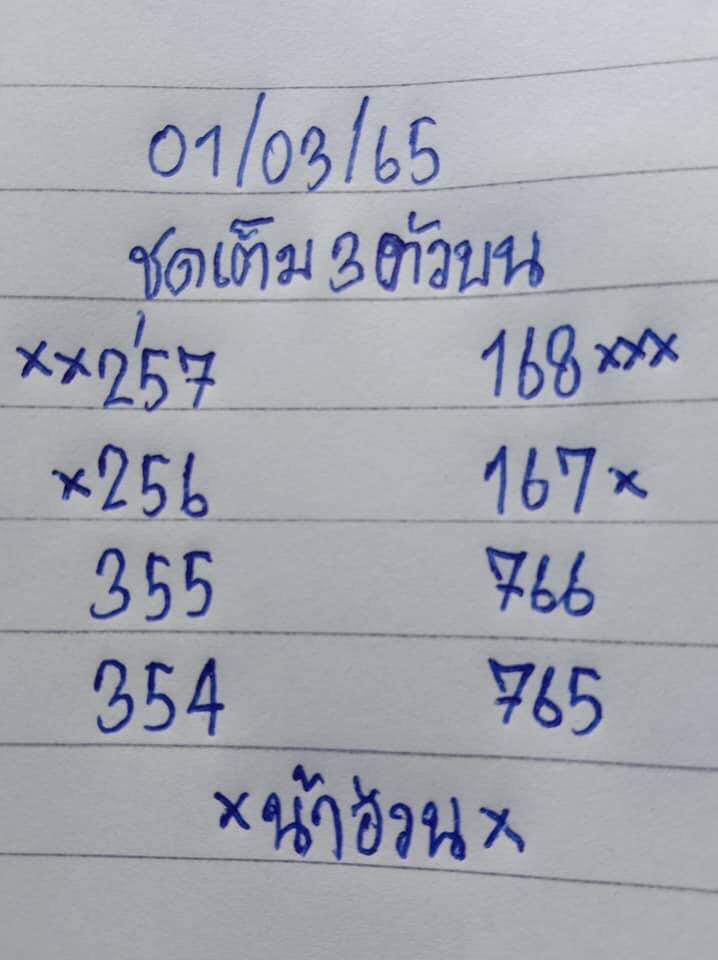 01/03/65
ชุดเต็ม 3 ตัวบน
××257 168×××
×256 167×
355 766
354 765
×น้าอ้วน×